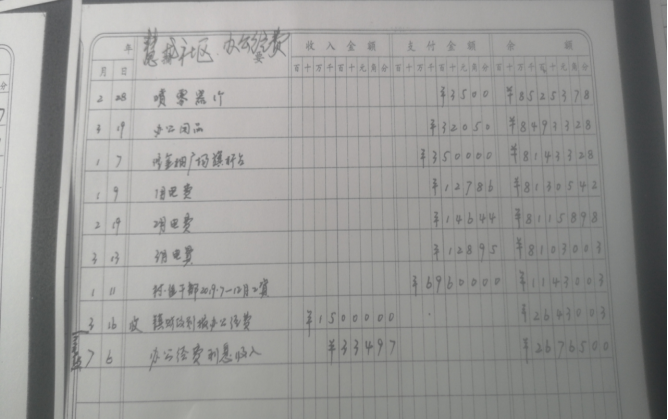 年 社区 办公经费 收入金额 支付金额 余额
月 日 百十万千百十元角分 百十万千百十元角分 百十万千百十元角分
2 28 喷雾器1个 ¥3500 ¥8525378
3 19 办公用品 ¥32050 ¥8493328
1 7 广场旗杆 ¥350000 ¥8143328
1 9 1月电费 ¥12786 ¥8130542
2 19 2月电费 ¥14644 ¥8115898
3 13 3月电费 ¥12895 ¥8103003
1 11 干部2019.7—12月工资 ¥6960000 ¥1143003
3 16 收 镇财政划拨办公经费 ¥1500000 ¥2643003
7 6 办公经费利息收入 ¥33497 ¥2676500